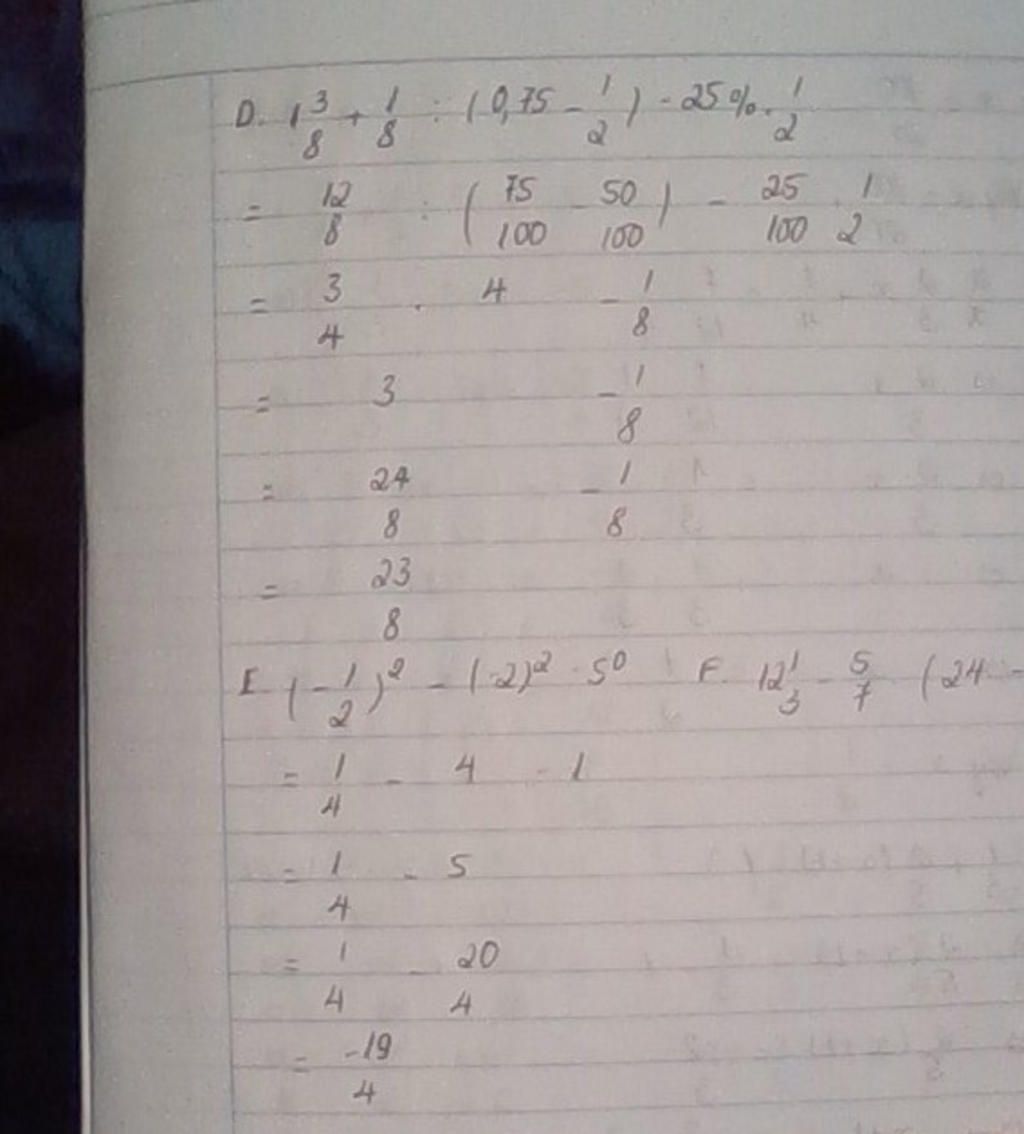 D. 1 3/8 + 1/8 : (0,75 - 1/2) - 25% . 1/2
= 12/8 : (75/100 - 50/100) - 25/100 . 1/2
= 3/4 . 4 - 1/8
= 3 - 1/8
= 24/8 - 1/8
= 23/8
E (-1/2)² - (-2)² - 5⁰ F. 12 1/3 - 5/7 (24 -
= 1/4 - 4 - 1
= 1/4 - 5
= 1/4 - 20/4
= -19/4